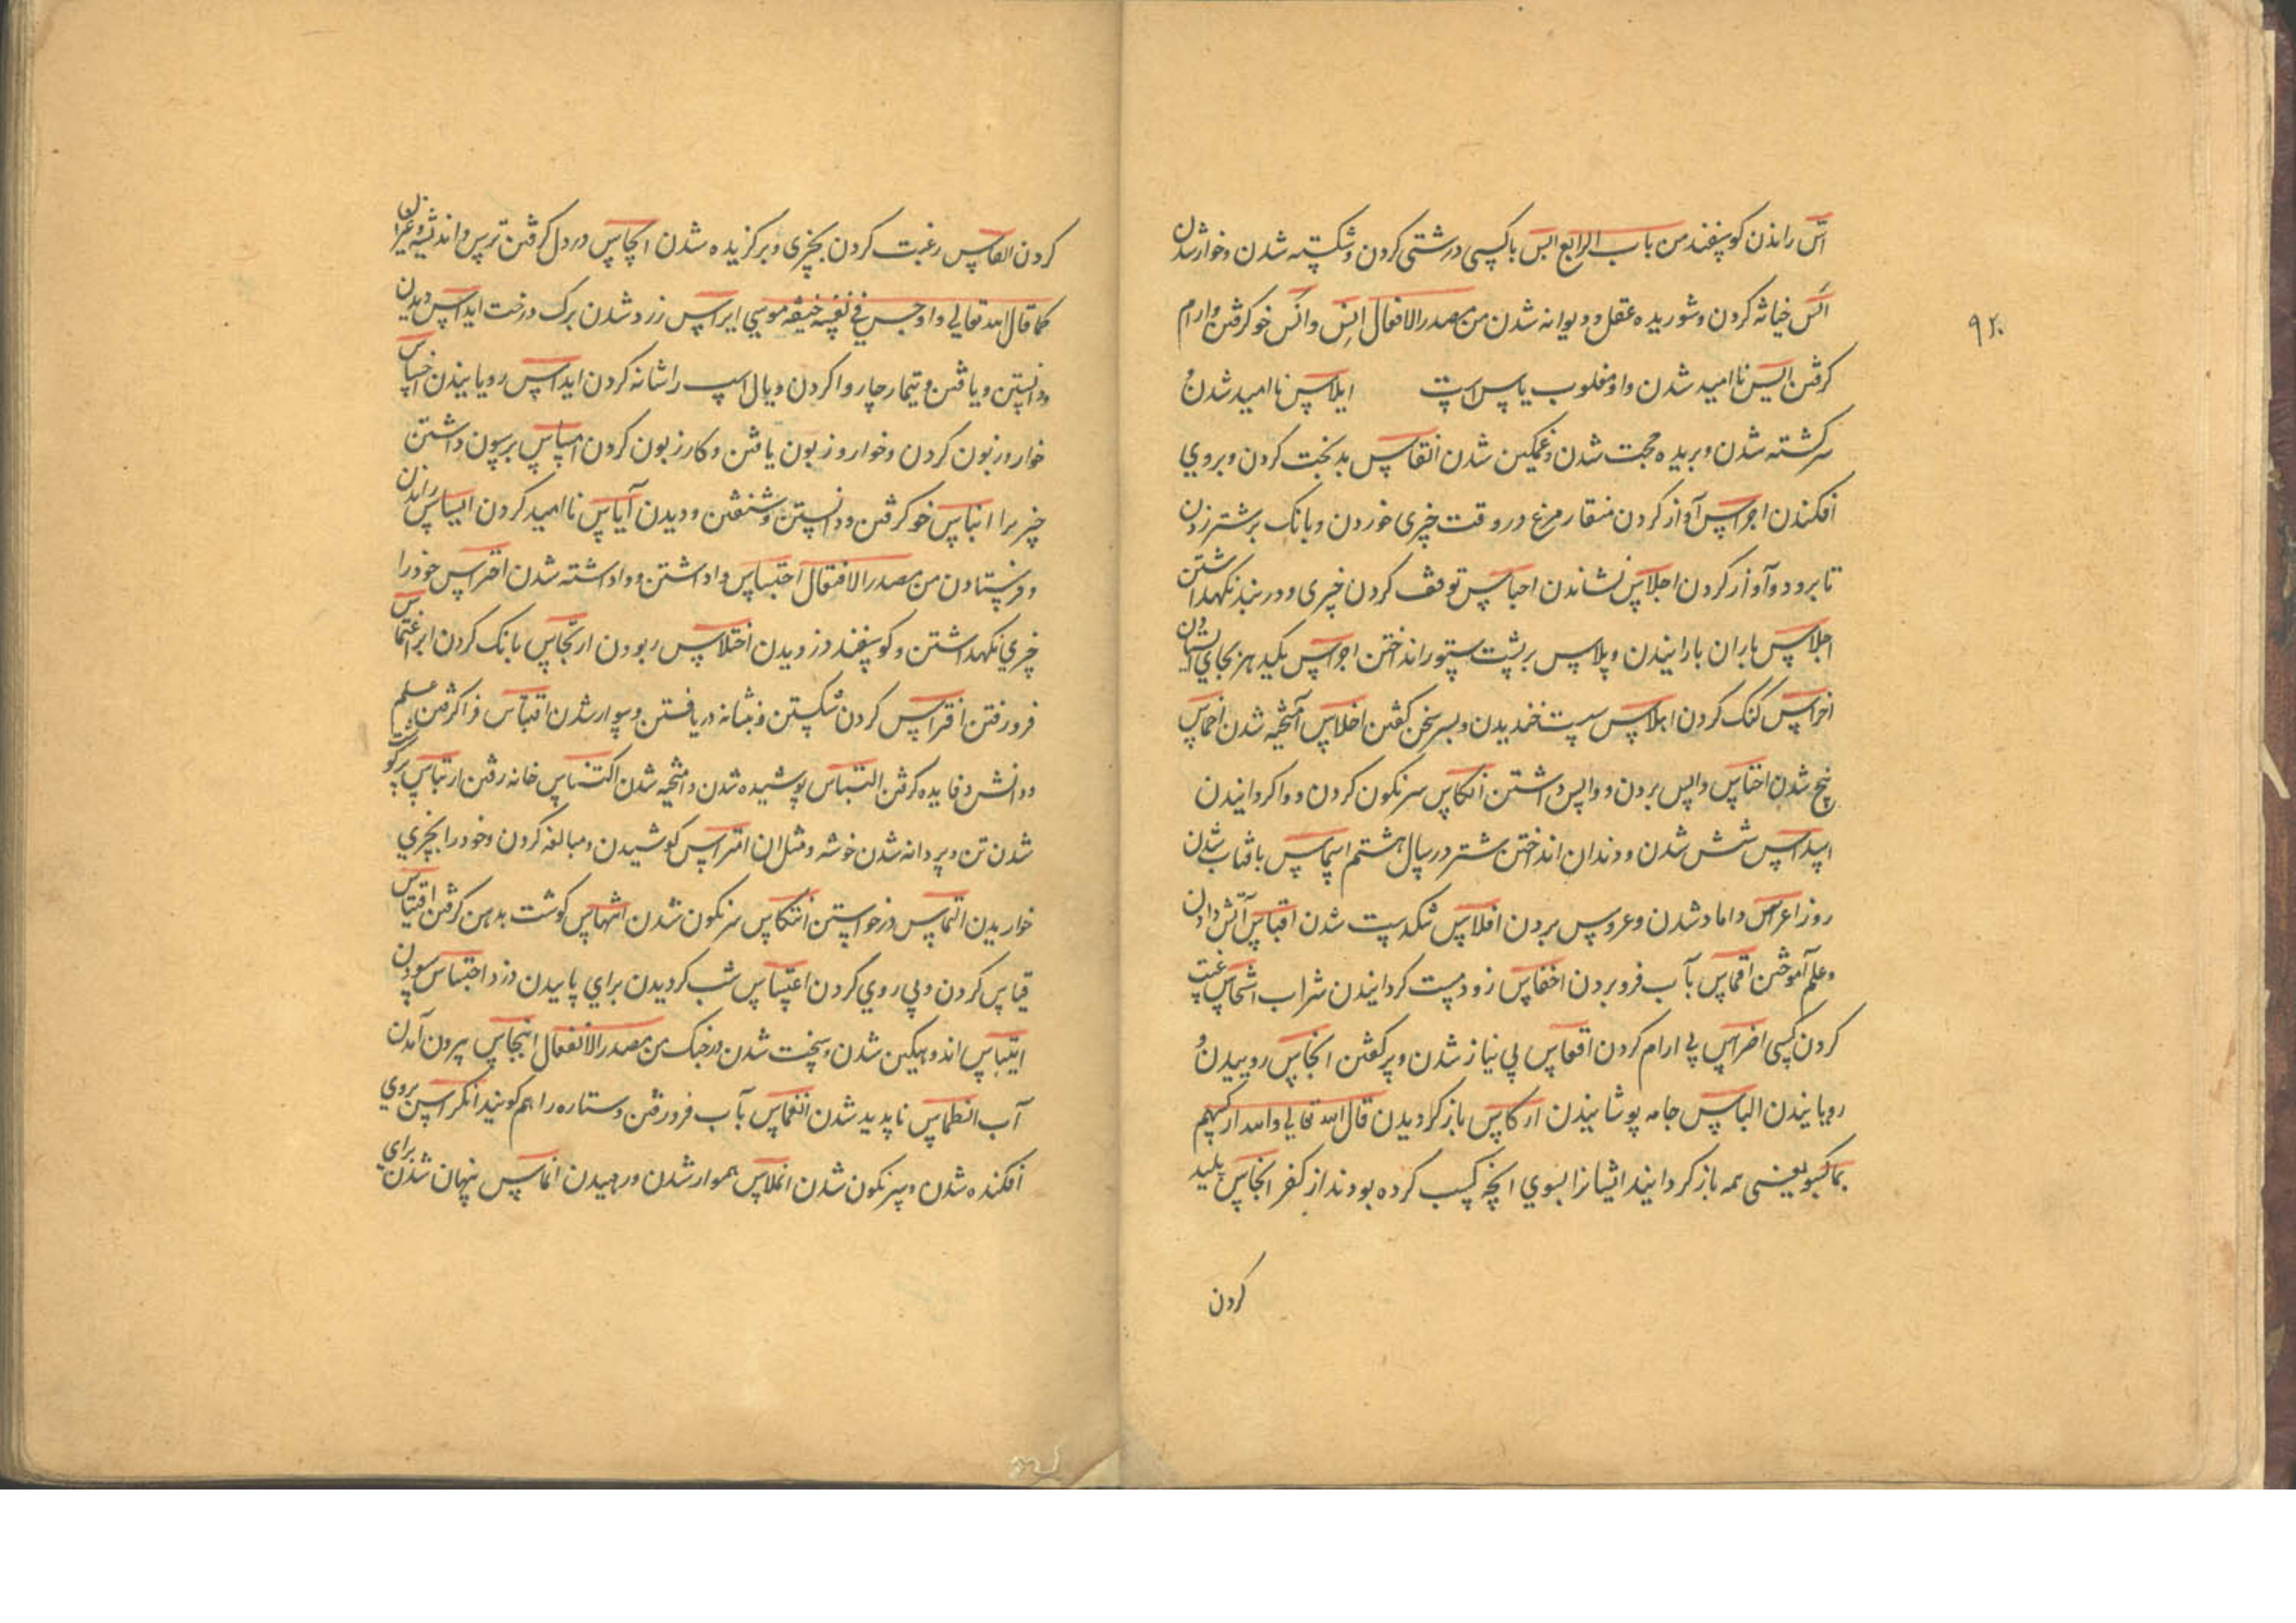 اس راندن کوسفند من باب الرابع ابس باکسی درشتی کردن و شکسته شدن و خوار شدن
الس خیانه کردن و شوریده عقل و دیوانه شدن من مصدر الافعال انس وانس خو کرفتن و ارام
کرفتن الیس ناامید شدن و او مغلوب یاس است ایلاس ناامید شدن و
سرکشته شدن و بریده حجت شدن و غمکین شدن اتعاس بدبخت کردن و بروی
افکندن اجراس آواز کردن منقار مرغ در وقت چیزی خوردن و بانک بر شتر زدن
تا برود و آواز کردن اجلاس نشاندن احباس توقف کردن چیزی و در بند نکهداشتن
احلاس باران بارانیدن و پلاس بر پشت ستور انداختن
اخراس کنک کردن سست خندیدن و سخن کفتن اخلاس آمیخته شدن
شدن اخناس واپس بردن و واپس داشتن انکاس سرنکون کردن و واکردانیدن
اسداس شش شدن و دندان انداختن شتر در سال هشتم اشماس بافتاب شدن
روز اعراس داماد شدن و عروس بردن افلاس تنکدست شدن اقباس آتش دادن
و علم آموختن اقماس بآب فرو بردن اخفاس زود مست کردانیدن شراب
کردن کسی اضراس بی ارام کردن بی نیاز شدن
رویانیدن الباس جامه پوشانیدن ارکاس باز کردیدن قال الله تعالی والله ارکسهم
بما کسبوا یعنی همه باز کردانید ایشانرا بسوی انچه کسب کرده بودند از کفر انجاس پلید
کردن
۹۲۰
کردن رغبت کردن بچیزی و برکزیده شدن ایجاس در دل کرفتن ترس و اندیشه
کما قال الله تعالی و اوجس فی نفسه خیفة موسی ایراس زرد شدن برک درخت ایناس دیدن
و دانستن و یافتن و تیمار چاروا کردن و یال اسب را شانه کردن رویانیدن اخساس
خوار و زبون کردن و خوار و زبون یافتن و کار زبون کردن امساس داشتن
چیز را ایناس خو کرفتن و دانستن و شنفتن و دیدن آیاس ناامید کردن راندن
و فرستادن من مصدر الافتعال احتباس واداشتن و واداشته شدن احتراس خود را
چیزی نکهداشتن و کوسفند دزدیدن اختلاس ربودن ارتجاس بانک کردن ابر اغتماس
فرو رفتن افتراس کردن شکستن و سوار شدن اقتباس فرا کرفتن علم
و دانش و فایده کرفتن التباس پوشیده شدن و آمیخته شدن خانه رفتن ارتباس پرکوشت
شدن تن و پر دانه شدن خوشه و مثل ان امتراس کوشیدن و مبالغه کردن و خود را بچیزی
خواریدن التماس درخواستن انتکاس سرنکون شدن انتهاس کوشت بدهن کرفتن اقتیاس
قیاس کردن و پی روی کردن اعتساس شب کردیدن برای پاییدن دزد
ابتیاس اندوهکین شدن و سخت شدن در جنک من مصدر الانفعال انبجاس بیرون آمدن
آب انطماس ناپدید شدن انغماس بآب فرو رفتن و ستاره را هم کویند انکراس بروی
افکنده شدن و سرنکون شدن انملاس هموار شدن و رهیدن انماس پنهان شدن برای